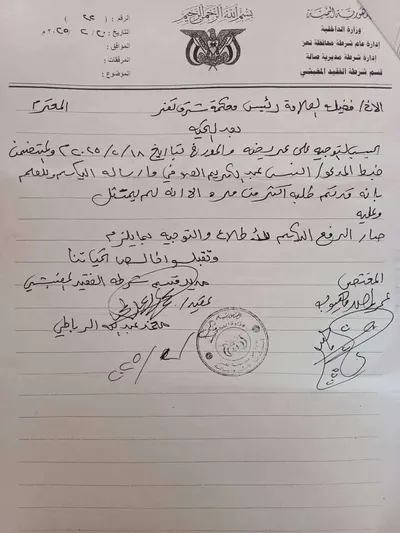 بسم الله الرحمن الرحيم
الجمهورية اليمنية
وزارة الداخلية
إدارة عام شرطة محافظة تعز
إدارة شرطة مديرية صالة
قسم شرطة الفقيد المغبشي
الرقم : ( )
التاريخ : / ٢ / ٢٠٢٥م
الموافق :
المرفقات :
الموضوع :
الاخ / فضيلة العلامة رئيس محكمة شرق تعز المحترم
بعد التحية
حسب توجيهكم على عريضه والمورخ بتاريخ ٢٠٢٥/٢/١٨ والمتضمن
ضبط المدعو / عبدالكريم وارساله اليكم وللعلم
بانه قد تم طلبه اكثر من مره الا انه لم يمتثل
وعليه
صار الرفع اليكم للاطلاع والتوجيه بمايلزم
وتقبلو خالص تحياتنا
المختص
مدير قسم شرطة الفقيد المغبشي
عقيد /
محمد عبده الرباطي